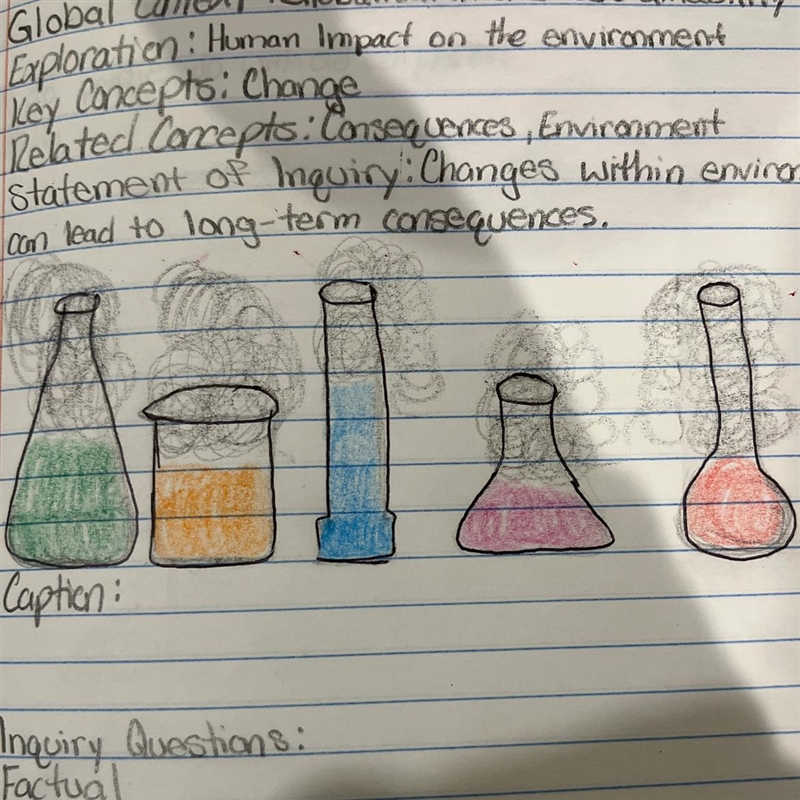 Global
Exploration: Human Impact on the environment
Key Concepts: Change
Related Concepts: Consequences, Environment
Statement of Inquiry: Changes within environ
can lead to long-term consequences.
Caption:
Inquiry Questions:
Factual